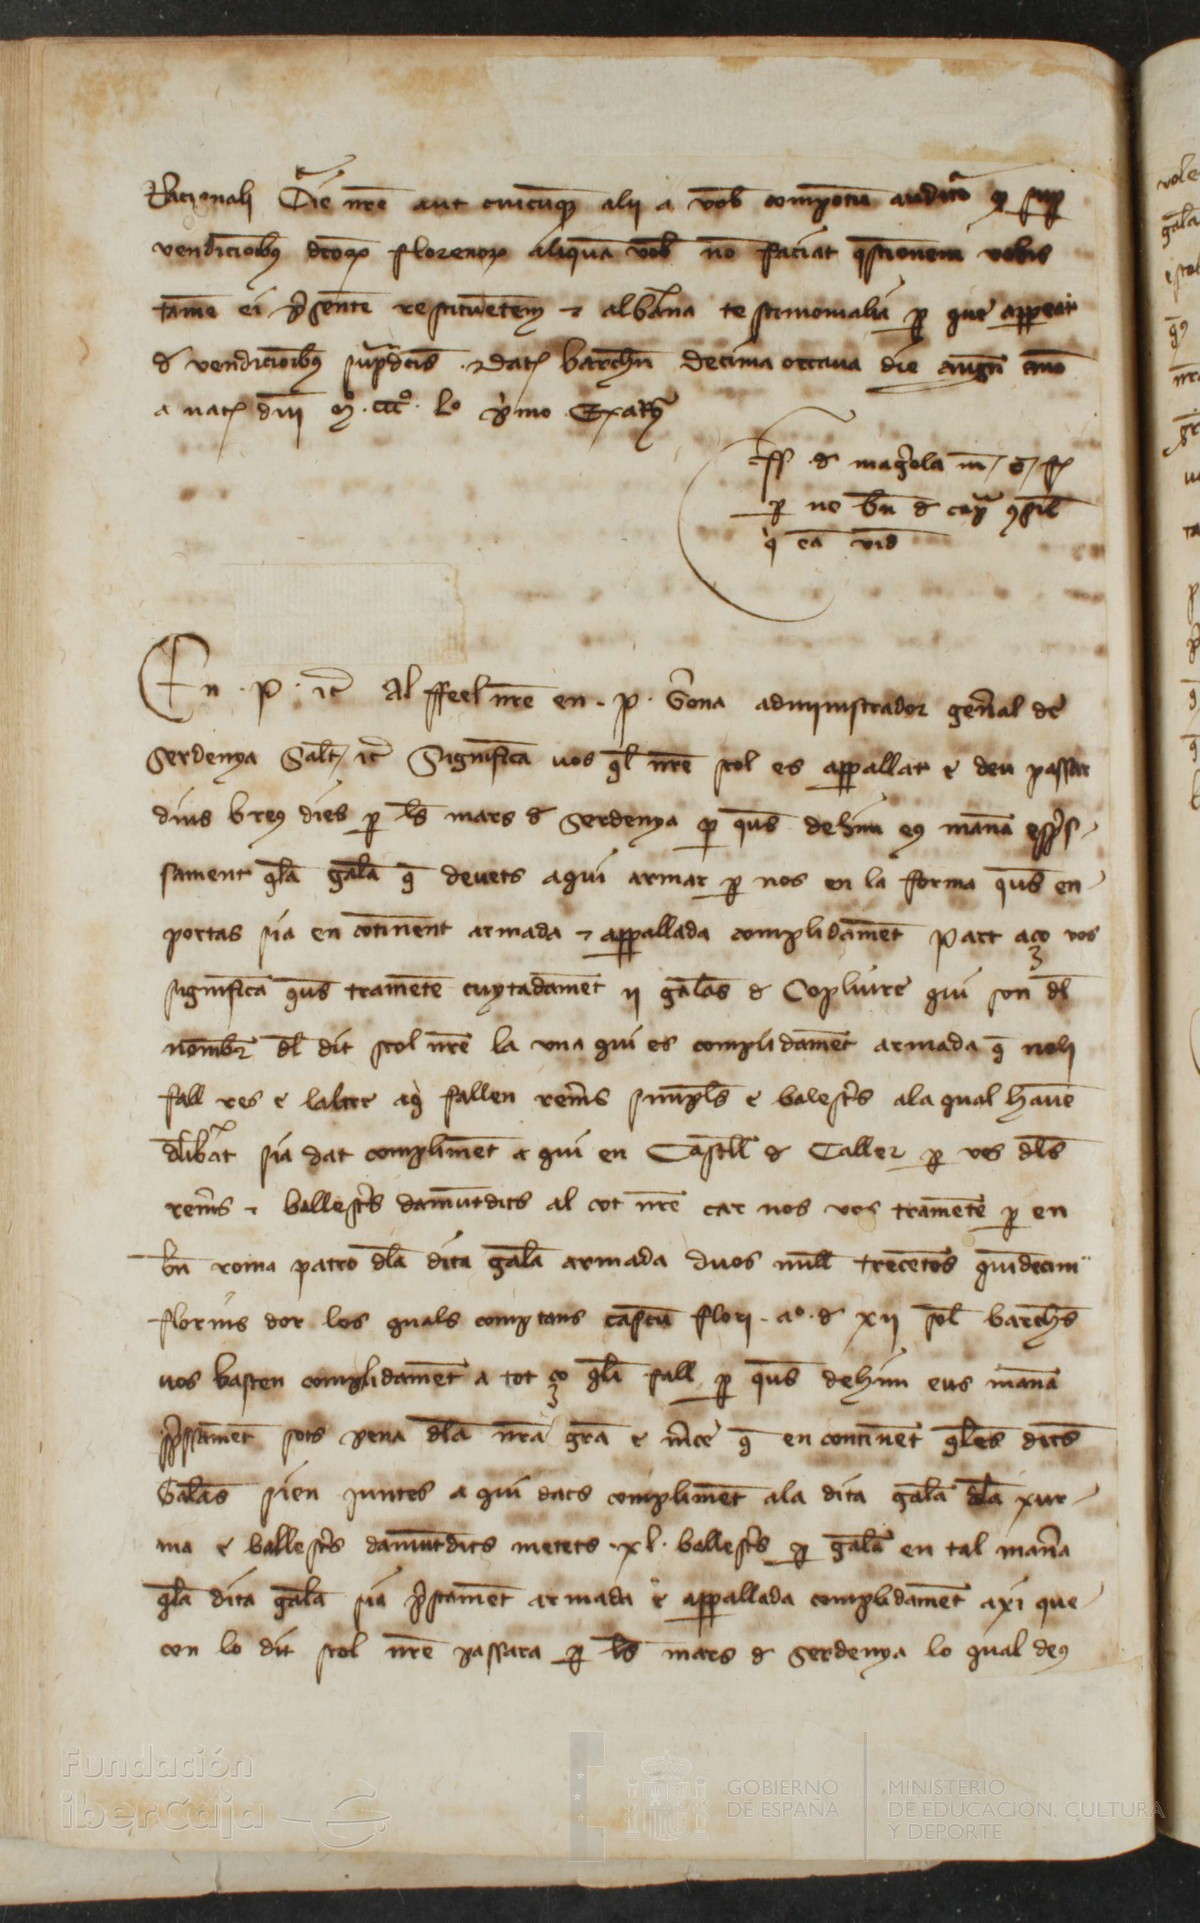 Racionali Curie nre aut cuicuq alii a vob compotu auditur q sup
vendicioib dcoꝝ florenoꝝ aliqua vob no faciat qstionem vobis
tame ei psente restituetem ⁊ albana testimonialia p que appeat
d vendicioib supdcis · Dat barchn decima octava die augti anno
a nat dni Mº · CCCº · Lº primo · Exa Rˢ
ff · d magrola m / e / f
p ne bn d capa qsil
q ea vid
En · P · ⁊c Al ffeel nre en · P · Grona administrador genal de
Serdenya Salt / ⁊c Significa vos ql nre stol es appallat e deu passar
dins breus dies p ls mars d Serdenya p qus dehim eus mana esps-
sament qla gala q devets aqui armar p nos en la forma qus en-
portas sia en cotinent armada ⁊ appallada complidamet Part aço vos
significa qus tramete cuytadamet ii galas d Copliure qui son dl
nombr dl dit stol nre la una qui es complidamet armada q noli
fall res e laltre aq fallen rems simpls e balests ala qual havem
dlibat sia dat complimet aqui en Castell d Caller p vos dls
rems ⁊ ballests damutdits al cot nre car nos vos tramete p en
bn roma patro dla dita gala armada dvos mill trecetos quidecim
florins dor los quals comptans cascu flori · aº · d xii sol barchs
vos basten complidamet a tot ço qli fall p qus dehim eus mana
spssamet sots pena dla nra gra e mce q en continet qles dits
Galas sien juntes aqui dats complimet ala dita gala dla xur-
ma e ballests damutdits metets · xl · ballests p gala en tal mana
qla dita gala sia pstamet armada e appallada complidamet axi que
con lo dit stol nre passara p ls mars d Serdenya lo qual deu
Fundación
iberCaja
GOBIERNO
DE ESPAÑA
MINISTERIO
DE EDUCACIÓN, CULTURA
Y DEPORTE